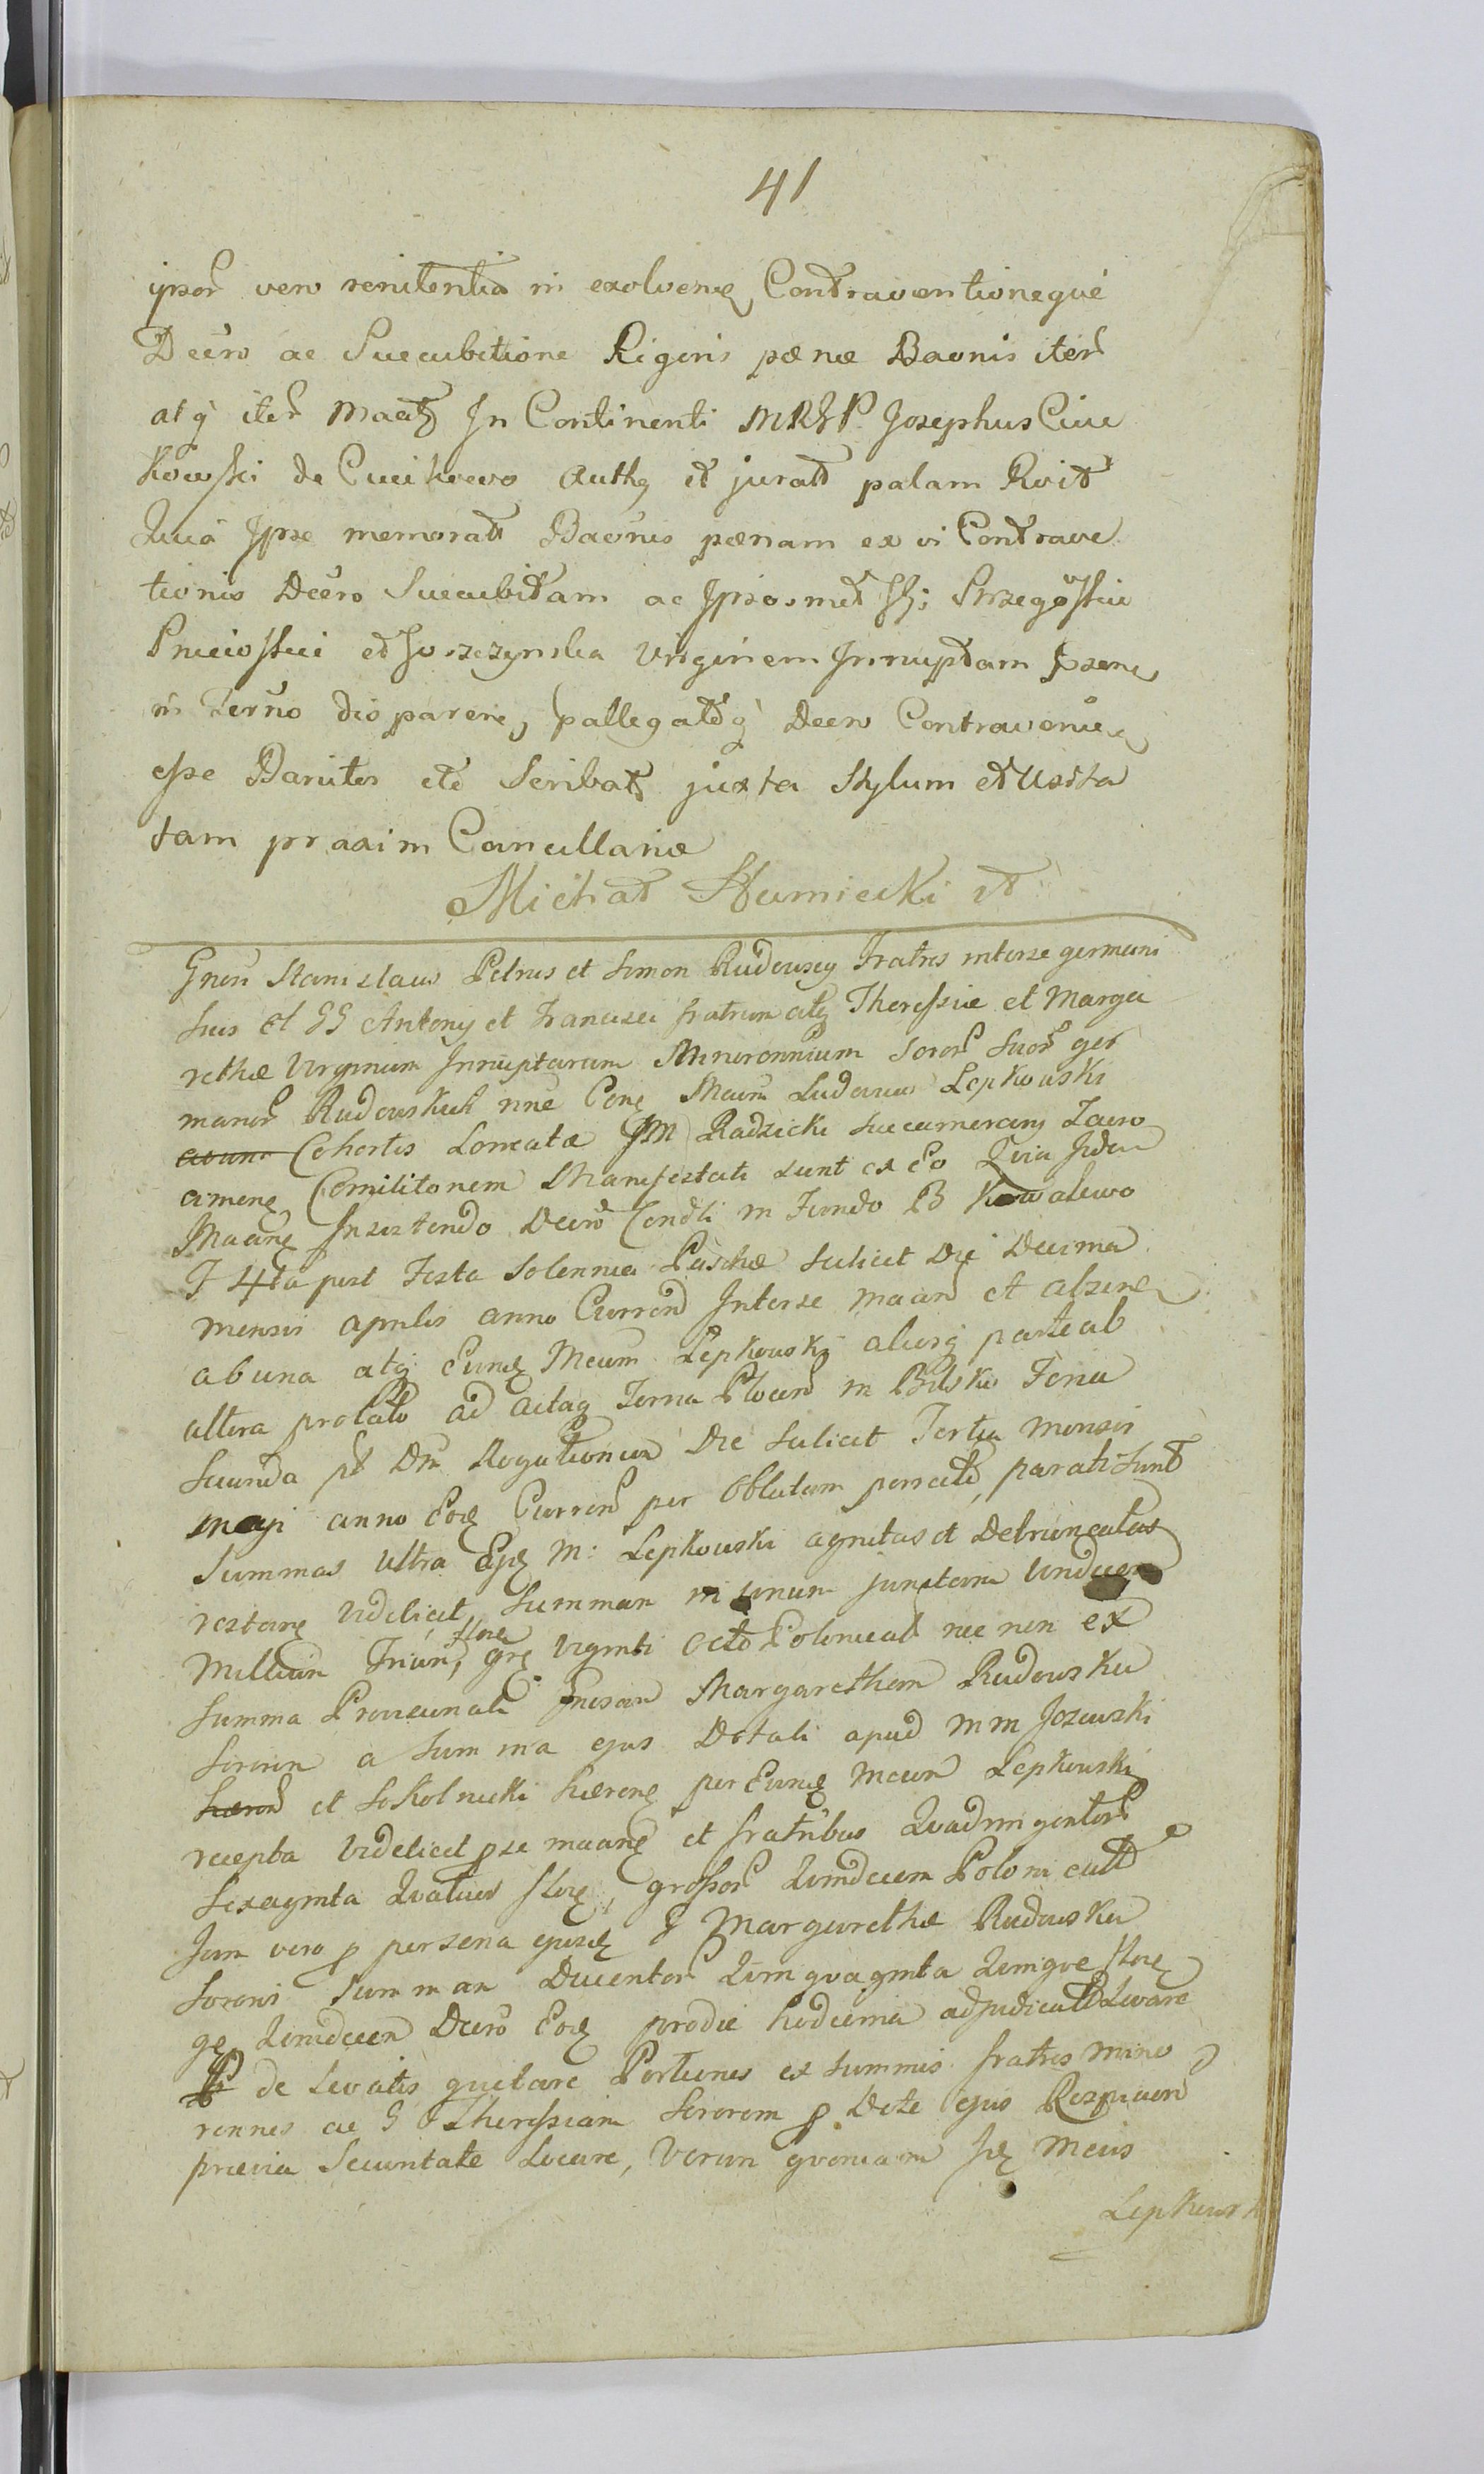 41
ipsor vero renitentia in exolvene Contraventioneque
Decro ac Succubitione Rigoris pænæ Baonis iter
atq iter Maatz In Continenti MRJP. Josephus Ciuc
kowski de Cucikowo Authg et jurat palam Rvit
Quia Ipse memorat Baonis pænam ex vi Contrave
tionis Decro Succubitam ac Ipsosmet Strzegoskie
et Virginem Innuptam
in Terno disparere, pallegatoq Decro Contravenie
esse Banitos etc Scribatz juxta Stylum et Usita
tam praxim Cancellariæ
Michał Humiecki
Gnosi Stanislaus Petrus et Simon Rudowscy Fratres interse germani
Suo et GG Antony et Francisci fratrum atq Theressiæ et Marga
rethæ Virginum Innuptarum Minorennium Soror Suor ger
manor Rudowskich nne Cong Maum Ludovicum Lepkowski
Cohortis Loricatæ JM Radzicki Succamerary Zawo
amene Comilitonem Manifestati sunt ex Eo Quia Idem
Maane Insistendo Decro Condli in Fundo B Kowalewo
F 4ta post Festa Solennia Paschæ Scilicet Die Decima
mensis aprilis anno Curren Interse maan et absene
ab una atq Eunde Meum Lepkowski aliasq parte ab
altera prolato ad actaq Terna Plocen in Bilsko Feria
Secunda pt Dm Rogationum Die Scilicet Tertia mensis
maji anno Eode Curren per Oblatam porrecto, parati sunt
Summas Ultra Ejde M: Lepkowski agnitas et Detruncatas
restane videlicet Summam in unum junctam Undecem
Millium Trium, flore gre viginti octo Polonical nec non ex
Summa Provisionali Margaretham Rudowska
Sororem a Summa ejus Dotali apud MM Jozewski
et Sokolnicki hærene per Eunde Meum Lepkowski
recepta videlicet pse maane et fratribus Quadringentor
Sexaginta Quatuor flore, grossor Quindecem Polonicalt
Jam vero p persona ejusde G Margarethæ Rudowska
Sororis Summam Ducentor Quinquaginta Quinque flore
ge Quindecem Decro Eode prodie hodierna adjudicatt Levare
de Levatis quietare Portiones ex Summis fratres mino
rennes ac G Theressiam Sororem p Dote ejus Respicien
prævia Securitate Locare, Verum quoniam Ide Meus
Lepkowsk